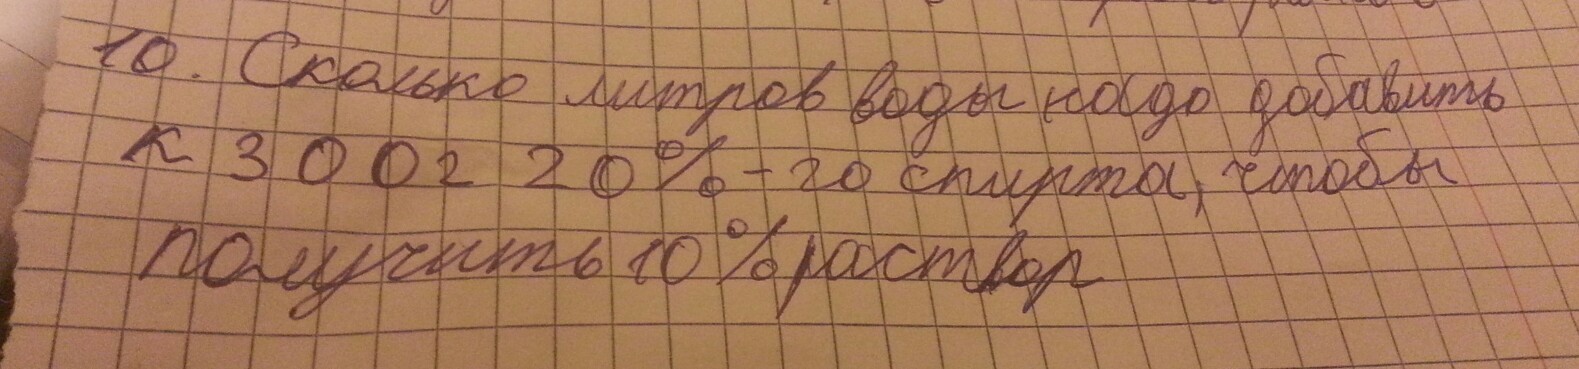 10. Сколько литров воды надо добавить
к 300г 20%-го спирта, чтобы
получить 10% раствор